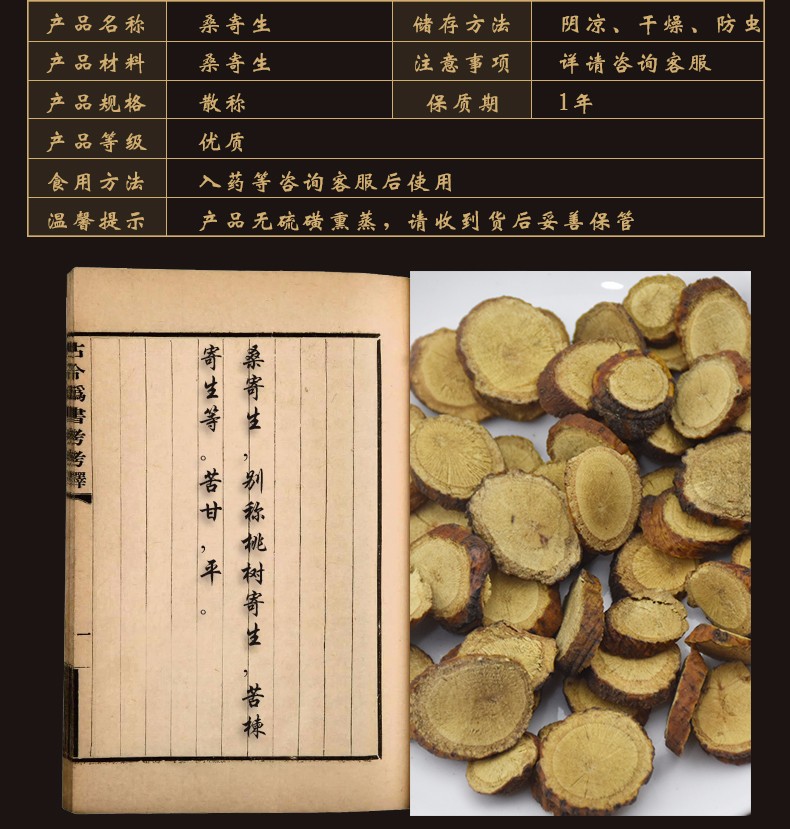 产品名称 桑寄生 储存方法 阴凉、干燥、防虫
产品材料 桑寄生 注意事项 详请咨询客服
产品规格 散称 保质期 1年
产品等级 优质
食用方法 入药等咨询客服后使用
温馨提示 产品无硫磺熏蒸，请收到货后妥善保管
桑寄生，别称桃树寄生，苦楝
寄生等。苦甘，平。
古今伪書考考釋
一